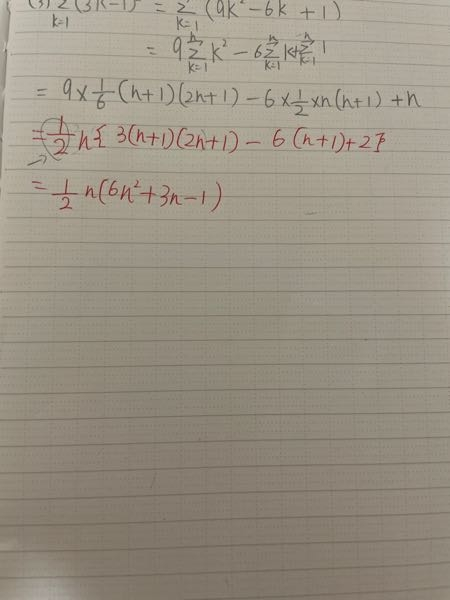 (3) Σ_{k=1} (3k-1)² = Σ_{k=1} (9k²-6k+1)
= 9Σ_{k=1}^{n} k² - 6Σ_{k=1}^{n} k + Σ_{k=1}^{n} 1
= 9×1/6 (n+1)(2n+1) - 6×1/2×n(n+1) + n
= 1/2 n{3(n+1)(2n+1) - 6(n+1)+2}
= 1/2 n(6n²+3n-1)